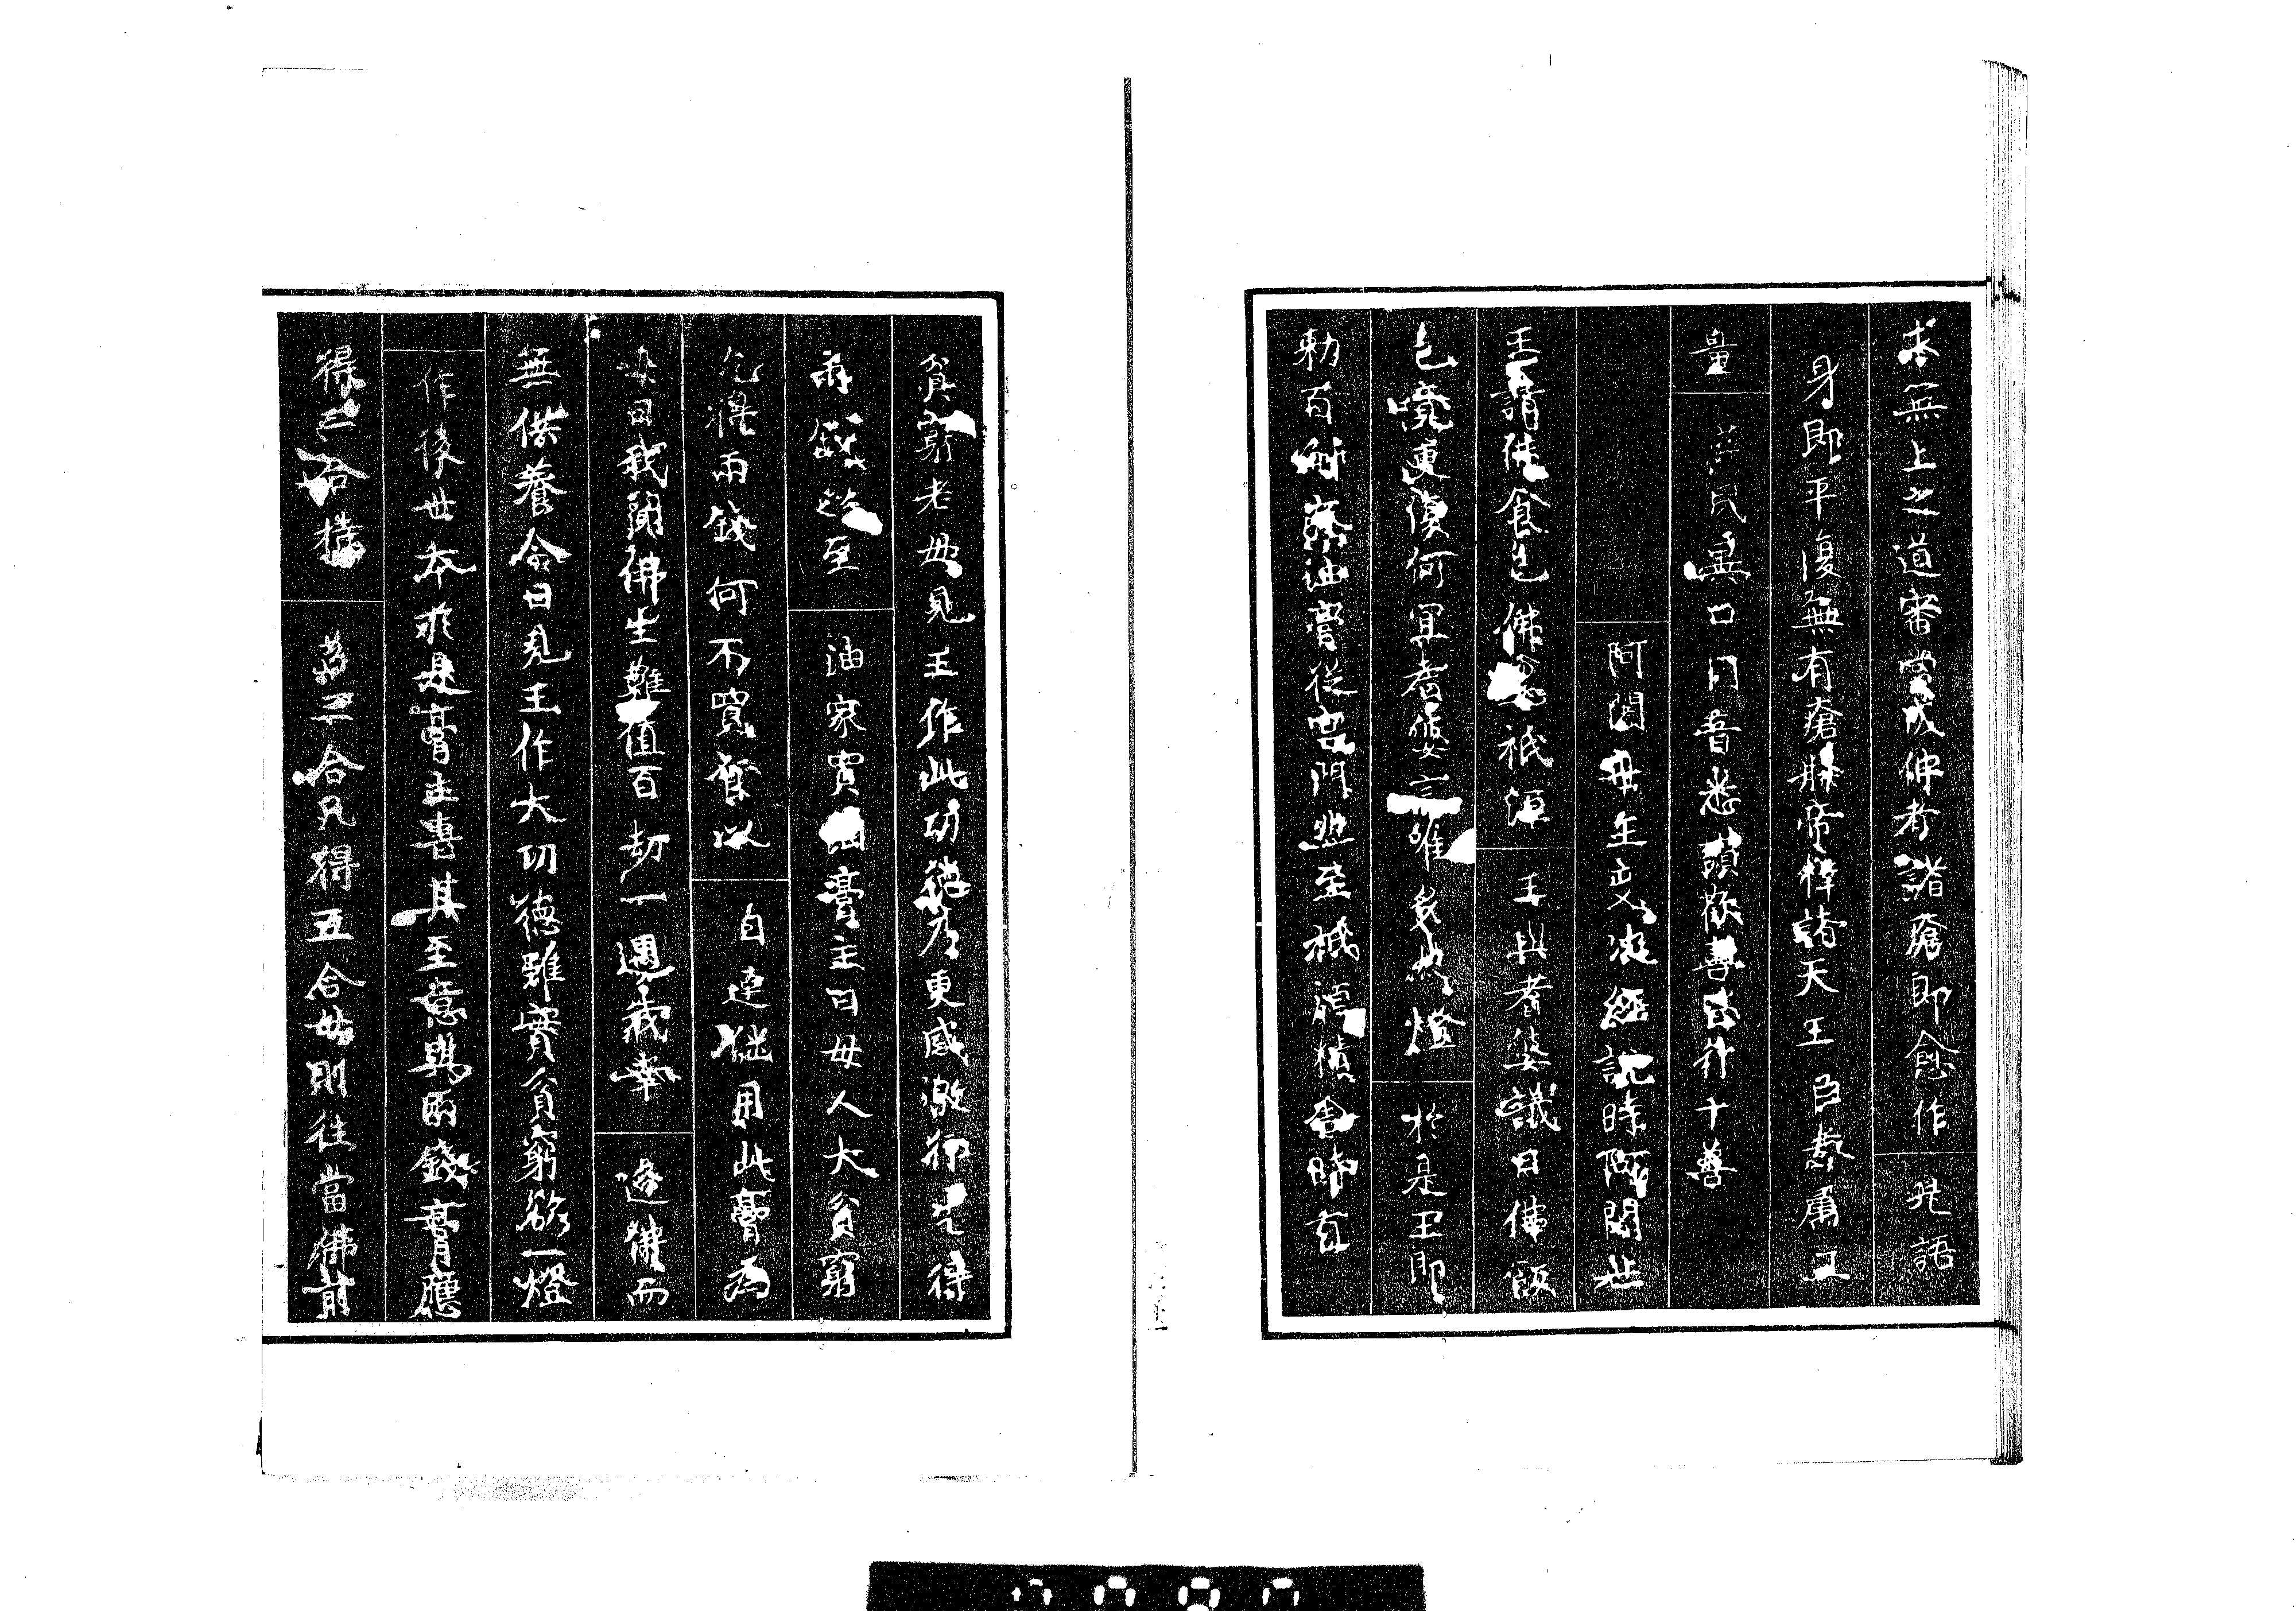 求無上之道審當成佛者諸瘡即愈作是語
身即平復無有瘡瘢帝釋諸天王臣數庸又
量 庶民異口同音悉讃歎善皆行十善
阿闍世王受決經記時阿闍世
王請佛食已佛還祇洹 王與耆婆議曰佛飯
已竟更復何宜耆婆言唯多然燈 於是王即
勅百斛麻油膏從宮門至祇洹精舍時有
貧窮老母見王作此功德乃更感激行乞得
兩錢以至 油家買油膏主曰母人大貧窮
乞得兩錢何不買食以 自連継用此膏為
母曰我聞佛生難值百劫一遇我幸 逢佛而
無供養今日見王作大功德雖實貧窮欲一燈
作後世本於是膏主喜其至意與兩錢膏應
得二合特 益三合凡得五合母則往當佛前